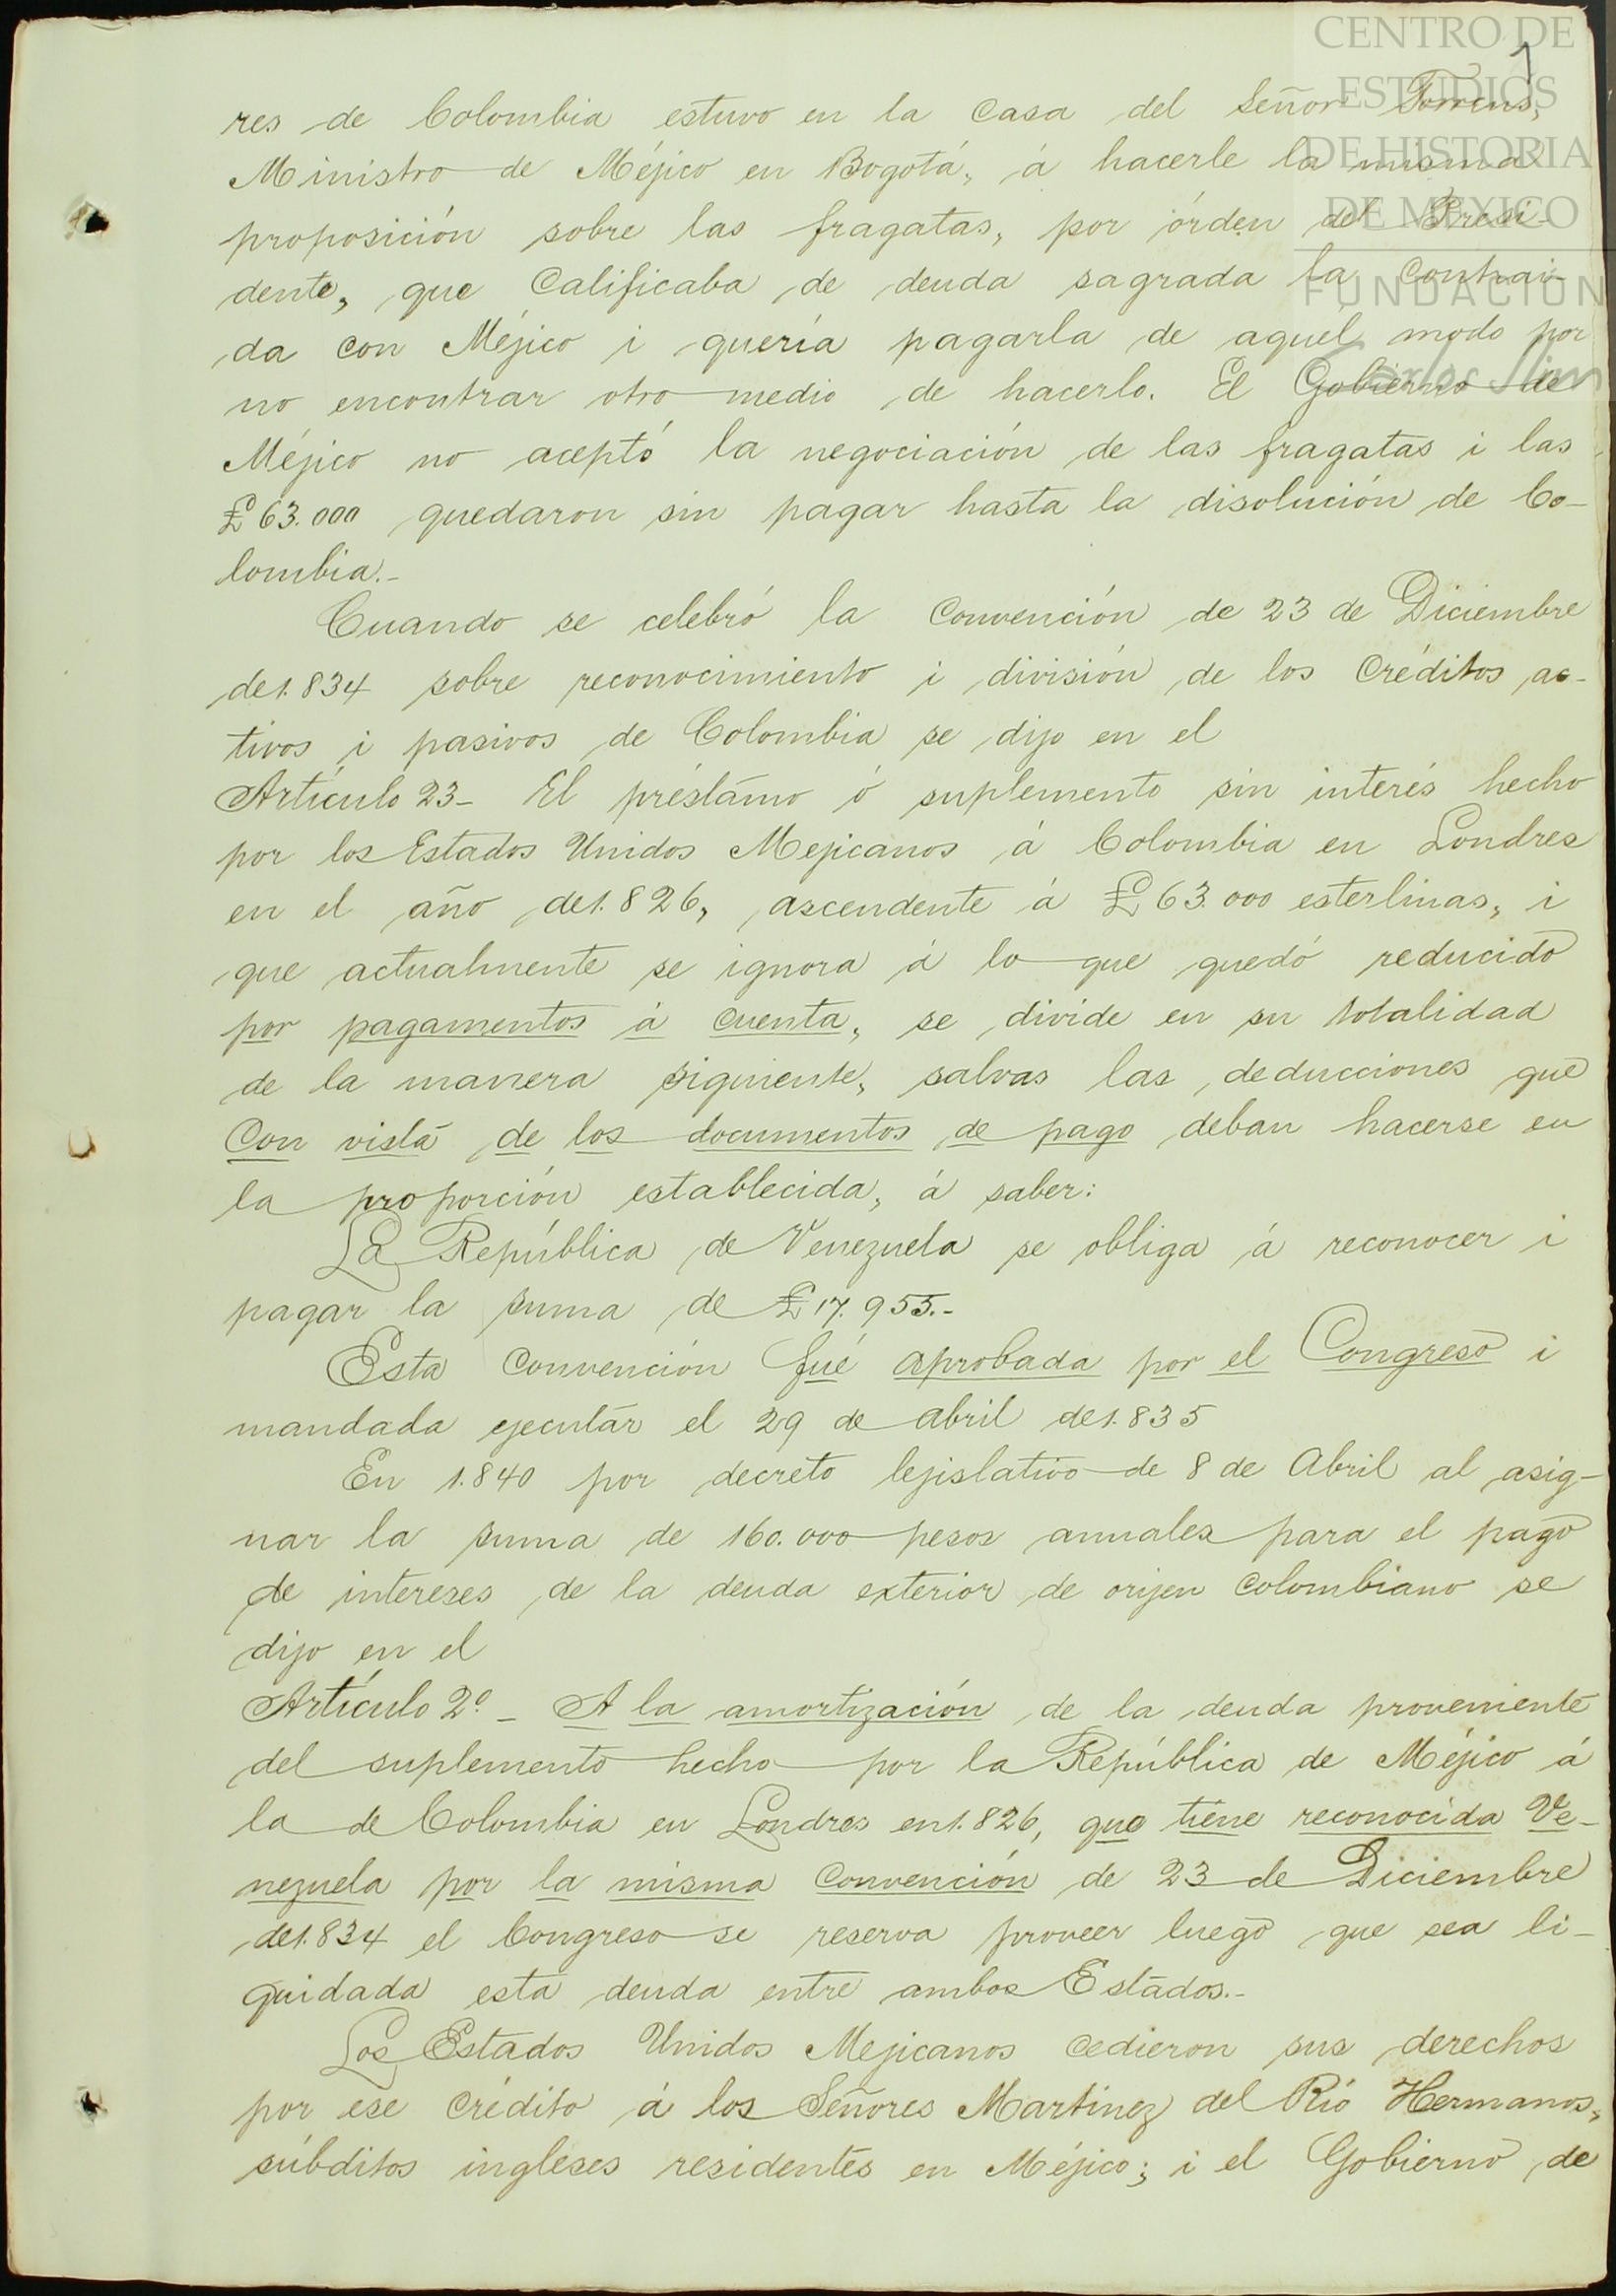 CENTRO DE
ESTUDIOS
DE HISTORIA
DE MÉXICO
FUNDACIÓN
Carlos Slim
1
res de Colombia estuvo en la Casa del Señor Torrens,
Ministro de Méjico en Bogotá, á hacerle la misma
proposición sobre las fragatas, por órden del Presi-
dente, que Calificaba de deuda sagrada la Contrai-
da con Méjico i quería pagarla de aquel modo por
no encontrar otro medio de hacerlo. El Gobierno de
Méjico no aceptó la negociación de las fragatas i las
£ 63.000 quedaron sin pagar hasta la disolución de Co-
lombia.-
Cuando se celebró la Convención de 23 de Diciembre
de 1.834 sobre reconocimiento i división de los Créditos ac-
tivos i pasivos de Colombia se dijo en el
Artículo 23- El préstamo ó suplemento sin interés hecho
por los Estados Unidos Mejicanos á Colombia en Londres
en el año de 1.826, ascendente á £ 63.000 esterlinas, i
que actualmente se ignora á lo que quedó reducido
por pagamentos á cuenta, se divide en su totalidad
de la manera siguiente, salvas las deducciones que
Con vista de los documentos de pago deban hacerse en
la proporción establecida, á saber:
La República de Venezuela se obliga á reconocer i
pagar la suma de £ 17.955.-
Esta Convención fué aprobada por el Congreso i
mandada ejecutar el 29 de abril de 1.835
En 1.840 por decreto lejislativo de 8 de Abril al asig-
nar la suma de 160.000 pesos anuales para el pago
de intereses de la deuda exterior de orijen Colombiano se
dijo en el
Artículo 2º - A la amortización de la deuda proveniente
del suplemento hecho por la República de Méjico á
la de Colombia en Londres en 1.826, que tiene reconocida Ve-
nezuela por la misma Convención de 23 de Diciembre
de 1.834 el Congreso se reserva proveer luego que sea li-
quidada esta deuda entre ambos Estados.-
Los Estados Unidos Mejicanos cedieron sus derechos
por ese Crédito á los Señores Martinez del Rió Hermanos,
súbditos ingleses residentes en Méjico; i el Gobierno de